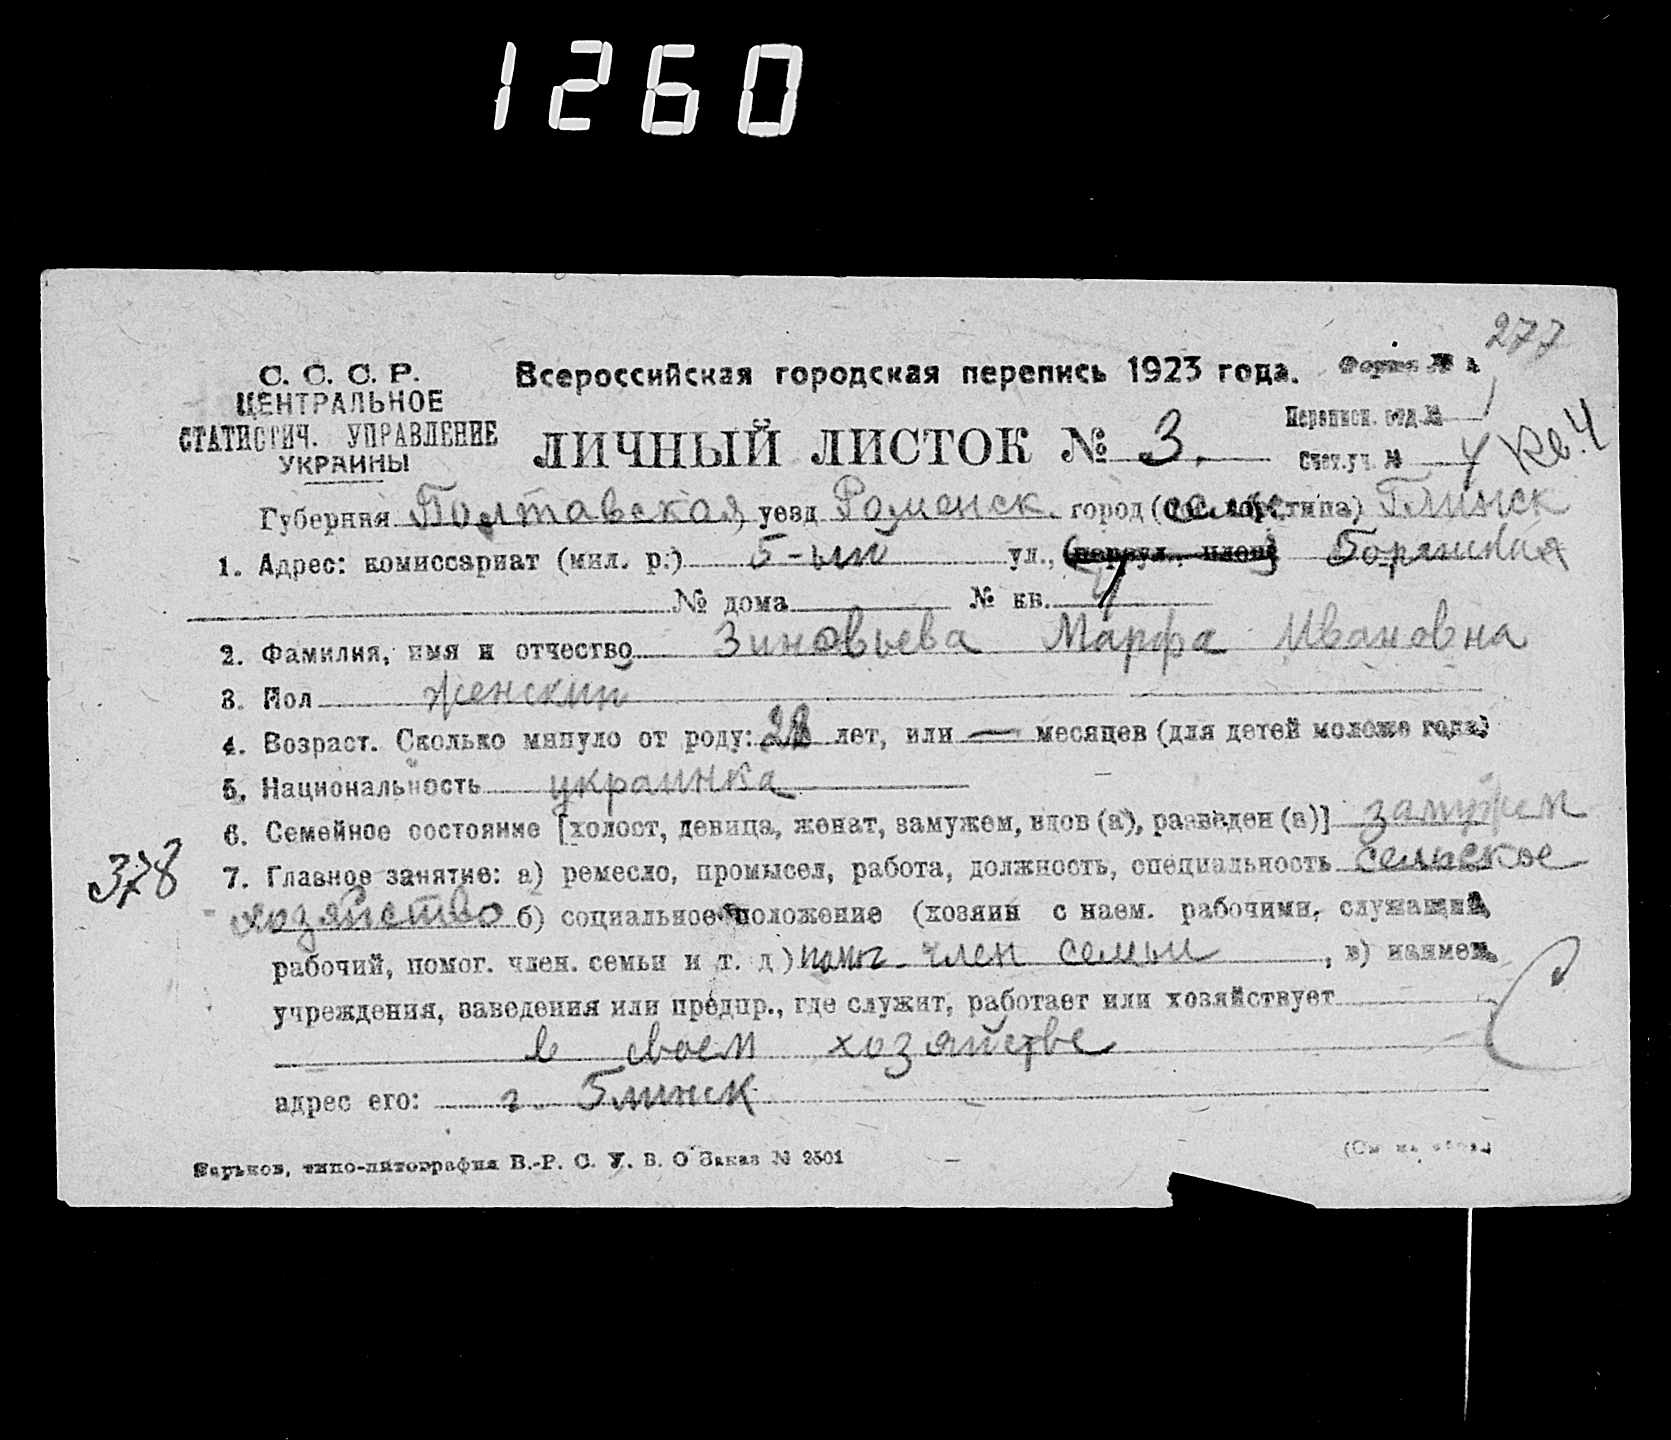 1260
277
С. С. С. Р.
ЦЕНТРАЛЬНОЕ
СТАТИСТИЧ. УПРАВЛЕНИЕ
УКРАИНЫ
Всероссийская городская перепись 1923 года.
Форма №
ЛИЧНЫЙ ЛИСТОК № 3.
Переписн. отд. № 1
Счет. уч. № 4 Кв. 4
Губерния Полтавская уезд Роменск. город Глинск
1. Адрес: комиссариат (мил. р.) 5-ый ул.,
№ дома № кв. 4
2. Фамилия, имя и отчество Зиновьева Марфа Ивановна
3. Пол женский
4. Возраст. Сколько минуло от роду: лет, или — месяцев (для детей моложе года)
5. Национальность украинка
6. Семейное состояние [холост, девица, женат, замужем, вдов (а), разведен (а)] замужем
378
7. Главное занятие: а) ремесло, промысел, работа, должность, специальность сельское
хозяйство б) социальное положение (хозяин с наем. рабочими, служащий,
рабочий, помог. член. семьи и т. д) помог член семьи, в) наимен.
учреждения, заведения или предпр., где служит, работает или хозяйствует
в своем хозяйстве
адрес его: г Глинск
Харьков, типо-литография В.-Р. С. У. В. О Заказ № 2501